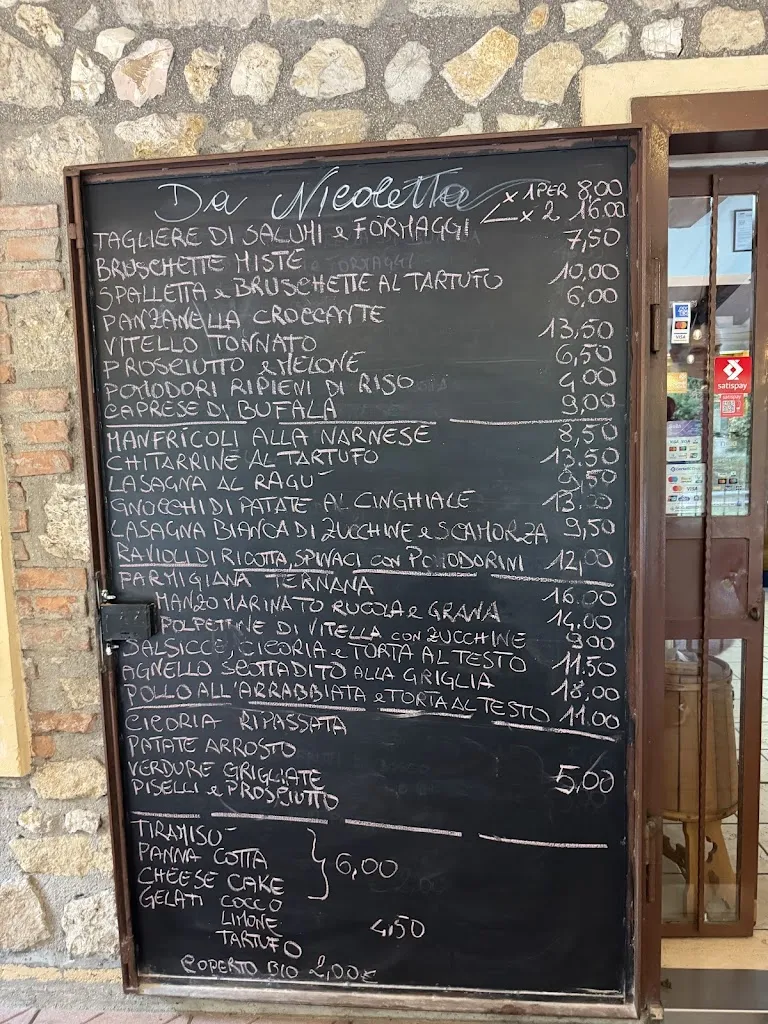 Da Nicoletta
x 1 PER 8,00
x 2 16.00
TAGLIERE DI SALUMI e FORMAGGI
BRUSCHETTE MISTE 7,50
SPALLETTA e BRUSCHETTE AL TARTUFO 10,00
PANZANELLA CROCCANTE 6,00
VITELLO TONNATO 13,50
PROSCIUTTO e MELONE 6,50
POMODORI RIPIENI DI RISO 4,00
CAPRESE DI BUFALA 9,00
MANFRICOLI ALLA NARNESE 8,50
CHITARRINE AL TARTUFO 13.50
LASAGNA AL RAGU' 9,50
GNOCCHI DI PATATE AL CINGHIALE
LASAGNA BIANCA DI ZUCCHINE e SCAMORZA 9,50
RAVIOLI DI RICOTTA, SPINACI con POMODORINI 12,00
PARMIGIANA TERNANA
MANZO MARINATO RUCOLA e GRANA 16.00
POLPETTINE DI VITELLA con ZUCCHINE 14.00
SALSICCE, CICORIA e TORTA AL TESTO 11.50
AGNELLO SCOTTADITO ALLA GRIGLIA 18,00
POLLO ALL'ARRABBIATA e TORTA AL TESTO 11.00
CICORIA RIPASSATA
PATATE ARROSTO
VERDURE GRIGLIATE 5,00
PISELLI e PROSCIUTTO
TIRAMISU'
PANNA COTTA 6,00
CHEESE CAKE
GELATI COCCO
LIMONE 4,50
TARTUFO
COPERTO BIO 2,00€
satispay
satispay
VISA